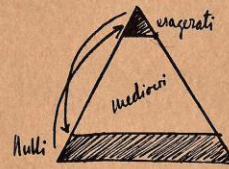 esagerati
mediocri
Nulli